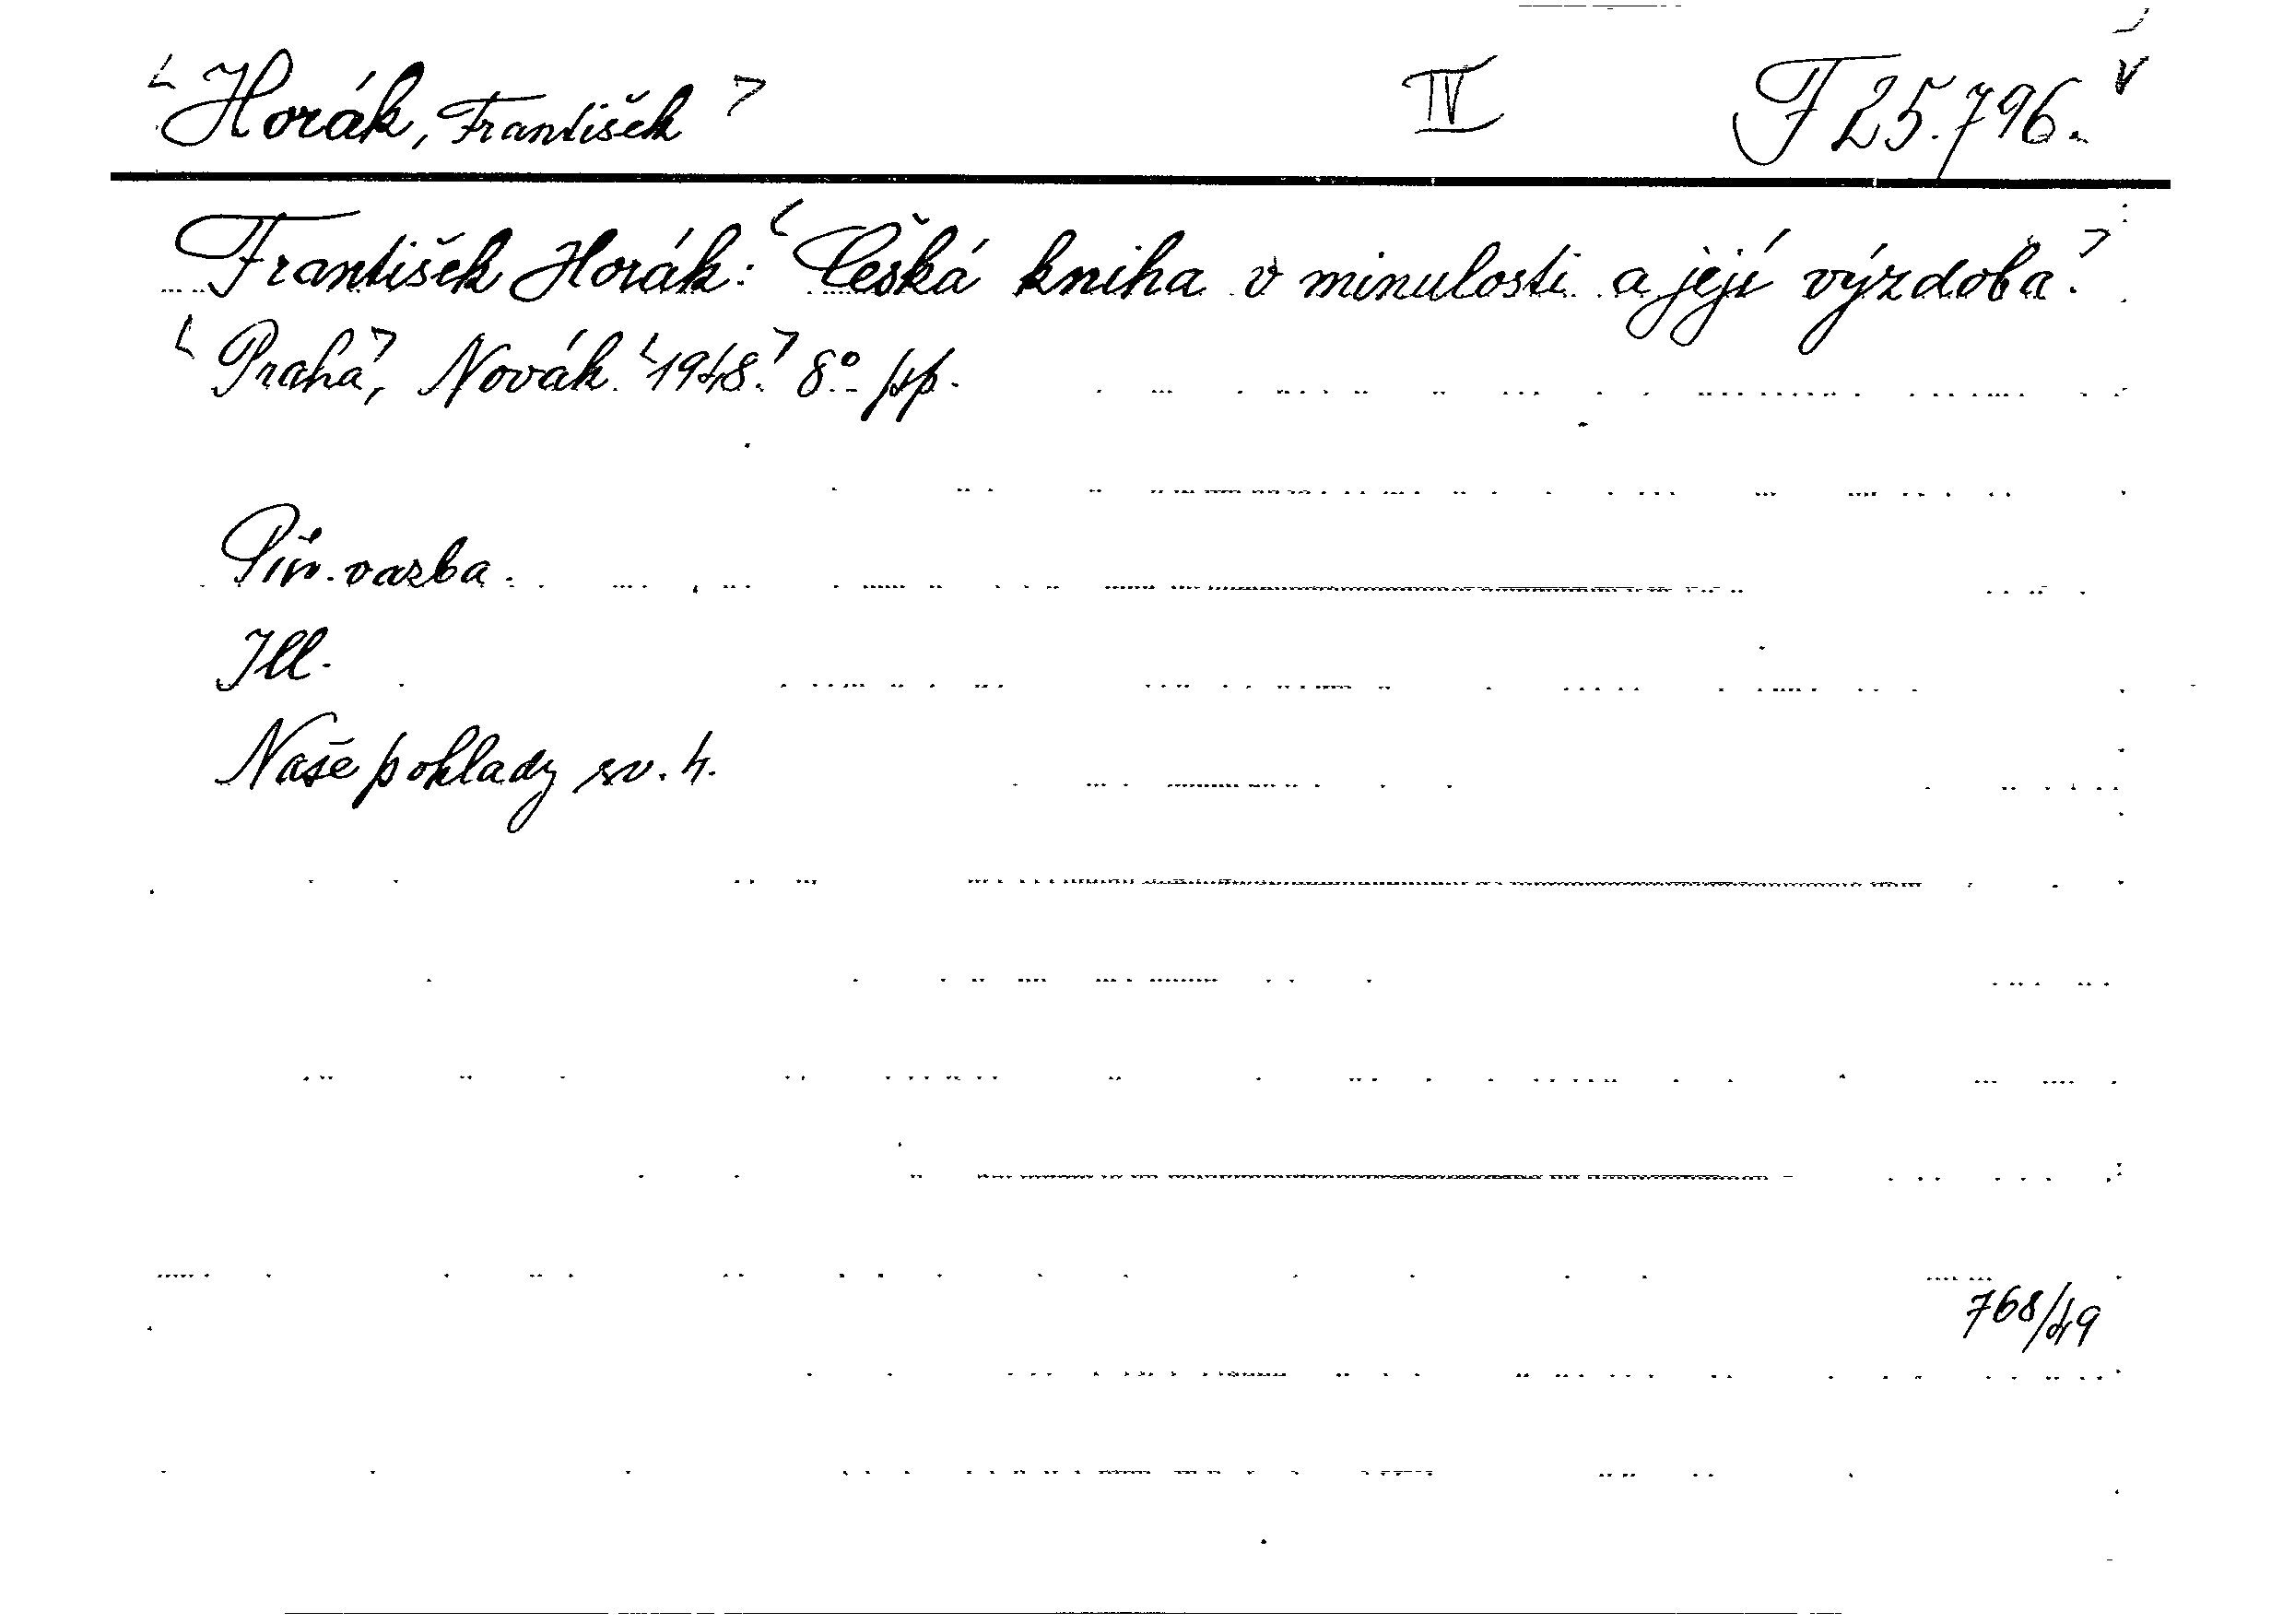 Horák, František IV F 25.796.
František Horák: Česká kniha v minulosti a její výzdoba.
Praha, Novák. 1948. 8°
Pův. vazba.
Ill.
Naše poklady sv. 4.
768/49